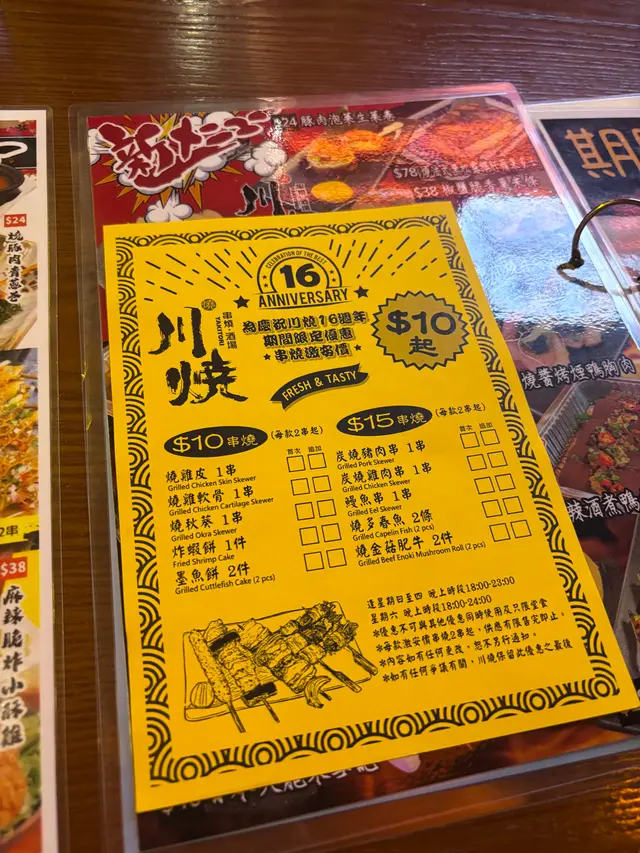 新メニュー
$24 豚肉泡菜生菜卷
$78
$38
川
$24
燒豚肉青蔥卷
$38
麻辣脆炸小酥雞
期
燒醬烤煙鴨胸肉
辣酒煮鴨
CELEBRATION OF THE BEST
16
ANNIVERSARY
川燒
串燒·酒場
YAKITORI
為慶祝川燒16週年
期間限定優惠
串燒激安價
$10
起
FRESH & TASTY
$10 串燒 (每款2串起)
首次 追加
燒雞皮 1串
Grilled Chicken Skin Skewer
燒雞軟骨 1串
Grilled Chicken Cartilage Skewer
燒秋葵 1串
Grilled Okra Skewer
炸蝦餅 1件
Fried Shrimp Cake
墨魚餅 2件
Grilled Cuttlefish Cake (2 pcs)
$15 串燒 (每款2串起)
首次 追加
炭燒豬肉串 1串
Grilled Pork Skewer
炭燒雞肉串 1串
Grilled Chicken Skewer
鰻魚串 1串
Grilled Eel Skewer
燒多春魚 2條
Grilled Capelin Fish (2 pcs)
燒金菇肥牛 2件
Grilled Beef Enoki Mushroom Roll (2 pcs)
逢星期日至四 晚上時段18:00-23:00
星期六 晚上時段18:00-24:00
*優惠不可與其他優惠同時使用及只限堂食
*每款激安價串燒2串起，供應有限售完即止。
*內容如有任何更改，恕不另行通知。
*如有任何爭議有關，川燒保留此優惠之最後